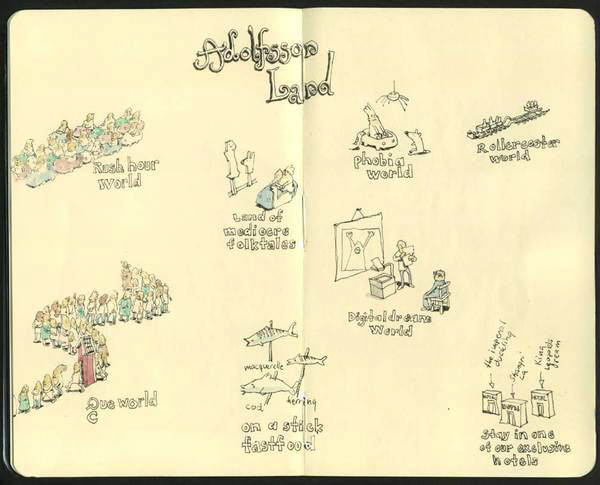 Adolfsson
Land
Rush hour
World
Land of
mediocre
folktales
phobia
world
Rollercoaster
world
Digital dreams
World
Que world
macquerelle
cod
herring
on a stick
fastfood
the imperial
duckling
King
leopolds
dream
HOTEL
HOTEL
Stay in one
of our exclusive
hotels